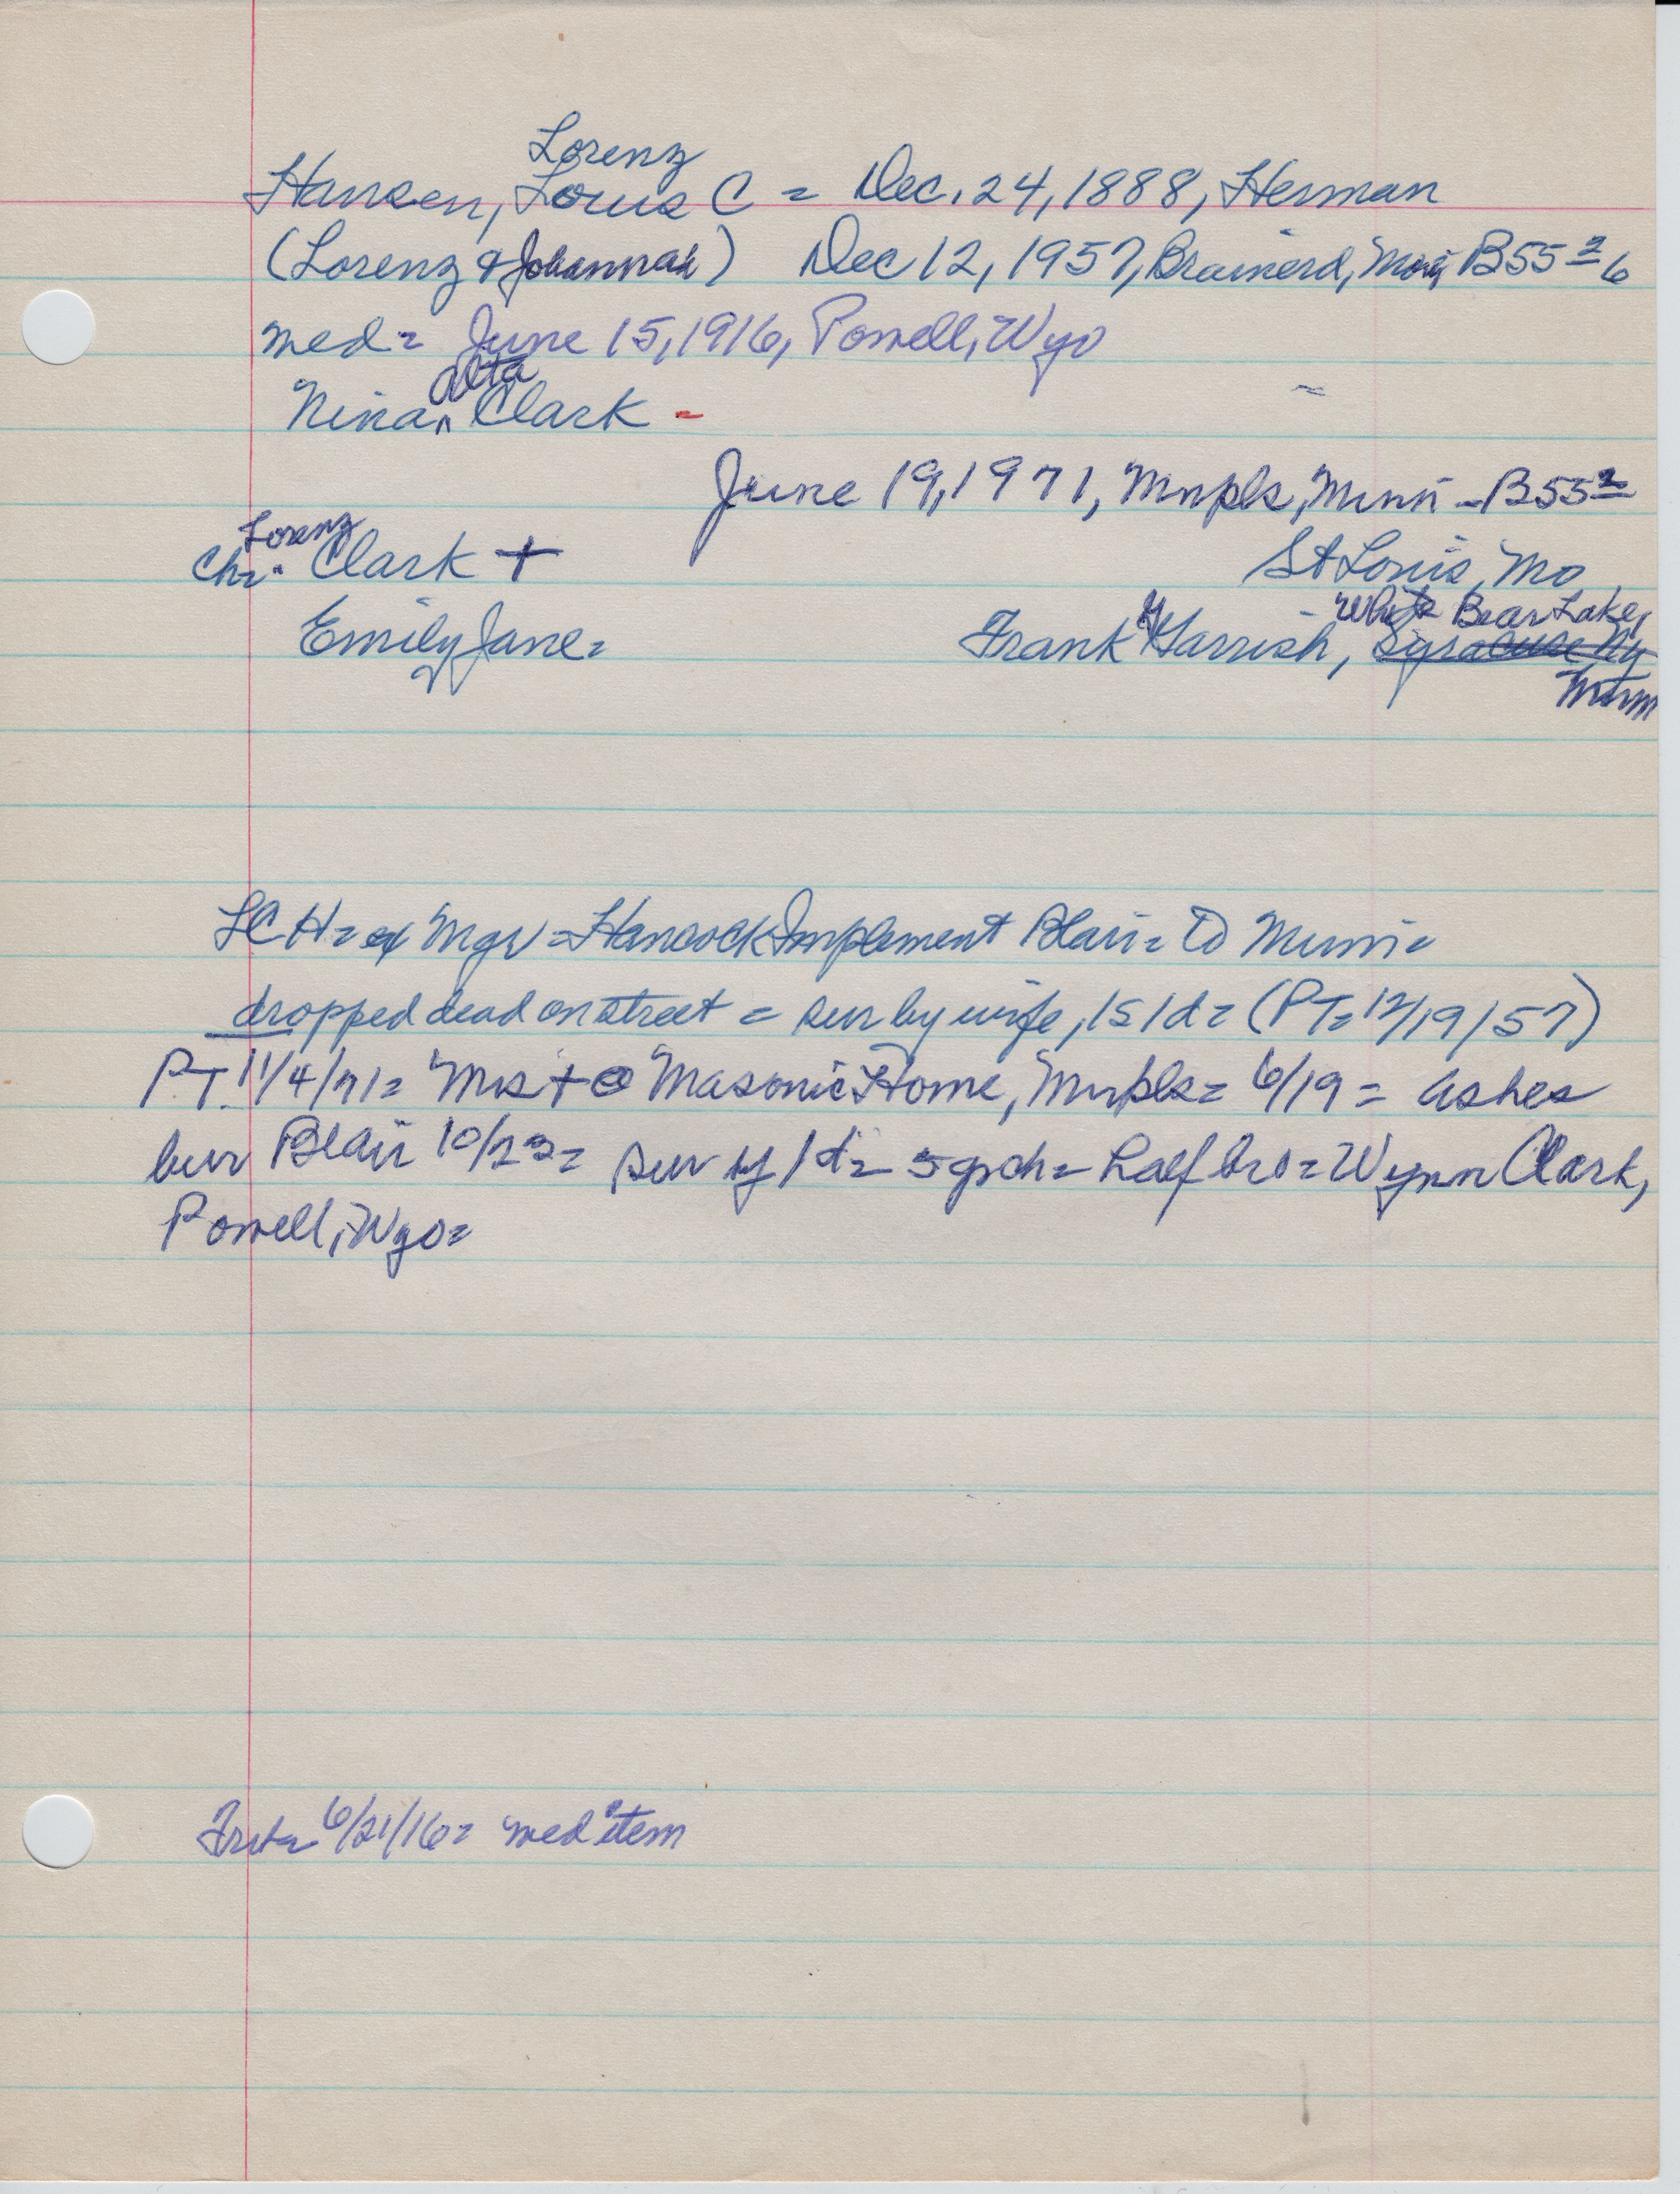 Lorenz
Hansen, Louis C = Dec. 24, 1888, Herman
(Lorenz & Johannah) Dec 12, 1957, Brainerd, B55 2 6
med = June 15, 1916, Powell, Wyo
alta
Nina ^ Clark -
June 19, 1971, Mnpls, Minn - B55 2
Lorenz
Chr. Clark + St Louis, Mo
- White Bear Lake,
Emily Jane = Frank Garrish, Syracuse Ny
Minn
LCH = Mgr = Hancock Implement Blair = to Minn =
dropped dead on street = sur by wife, 1s 1d = (PT = 12/19/57)
PT 11/4/71 = Mrs + @ Masonic Home, Mnpls = 6/19 = ashes
bur Blair 10/23 = sur by 1d = 5 grch = half bro = Wynn Clark,
Powell, Wyo =
6/21/16 = med item